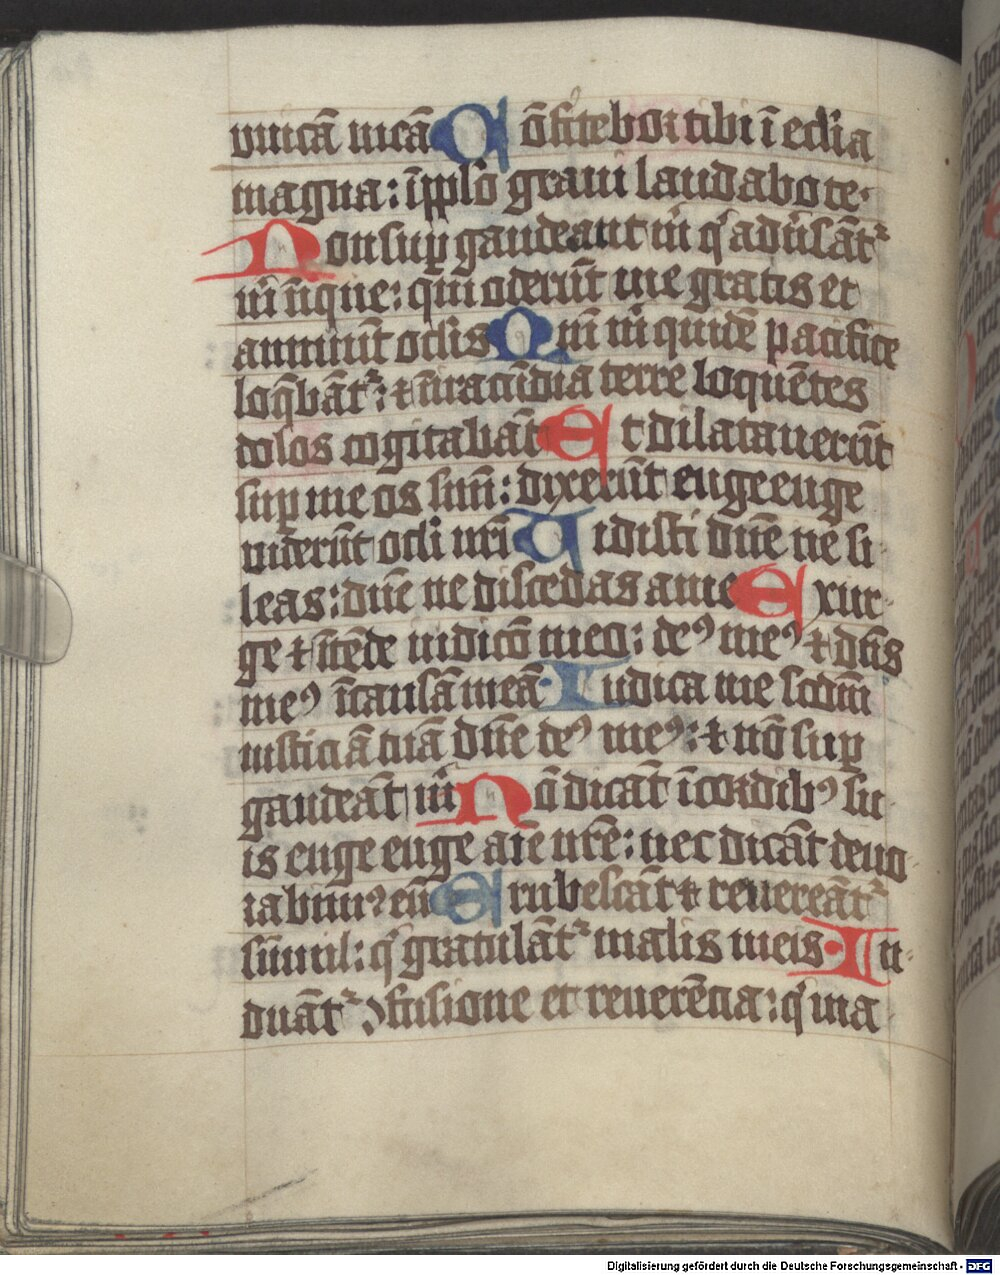 vnicā meā Cōfitebor tibi ī eccl̄ia
magna: ī pplō graui laudabo te·
Non suꝑ gaudeant m̄ qͥ adūsāt᷑
m̄ īique: qui oderūt me gratis et
annuūt oclis Qm̄ m̄ quidē pacifice
loqͣbāt᷑: ⁊ ī iracūdia terre loquētes
dolos cogitabāt Et dilatauerūt
suꝑ me os suū: dixerūt euge euge
uiderūt ocli nr̄i Uidisti dn̄e ne si
leas: dn̄e ne discedas a me Exur-
ge ⁊ ītēde iudicō meo: deꝰ meꝰ ⁊ dn̄s
meꝰ ī causā meā· Iudica me scdm̄
iusticiā tuā dn̄e deꝰ meꝰ: ⁊ nō suꝑ
gaudeāt m̄ Nō dicāt ī cordibꝰ su-
is euge euge aīe nr̄e: nec dicāt deuo-
rabimꝰ eū Erubescāt ⁊ reuereāt᷑
simul: qͥ gratulāt᷑ malis meis· In-
duāt᷑ ꝯfusione et reuerēcia: qͥ ma
Digitalisierung gefördert durch die Deutsche Forschungsgemeinschaft - DFG